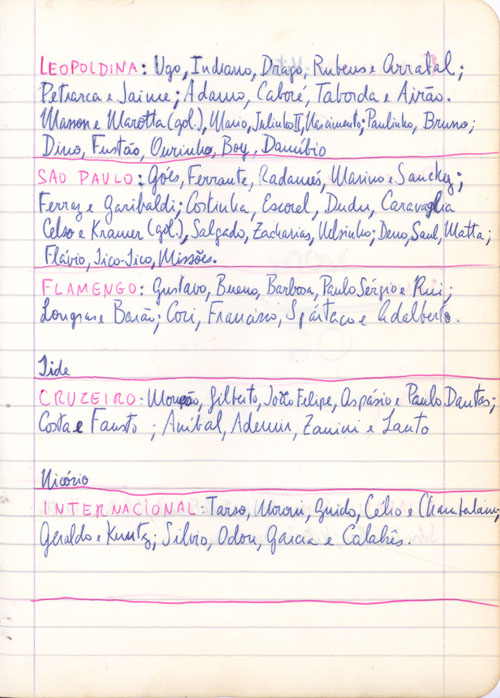 LEOPOLDINA: Ugo, Indiano, Drago, Rubens e Arrabal;
Petrarca e Jaime; Adamo, Caboré, Taborda e Airão.
Masson e Marotta (gol.), Mario, Julinho II, Nascimento; Paulinho, Bruno;
Dino, Fustão, Ourinho, Boy, Danúbio
SAO PAULO: Goés, Ferrante, Radamés, Marino e Sancky;
Ferraz e Garibaldi; Costinha, Escorel, Dudu, Caravaglia
Celso e Kramer (gol.), Salgado, Zacharias, Nelsinho; Deno, Saul, Matta;
Flávio, Tico-Tico, Missões.
FLAMENGO: Gustavo, Bueno, Barbosa, Paulo Sérgio e Rui;
Longras e Barão; Cori, Francisco, Spártaco e Adalberto.
Tide
CRUZEIRO: Mourão, Gilberto, João Felipe, Aspásio e Paulo Dantas;
Costa e Fausto ; Anibal, Ademir, Zanini e Lauto
Nicório
INTERNACIONAL: Tarso, Moroni, Guido, Célio e
Geraldo e Kuntz; Silvio, Odon, Garcia e Calabrês.